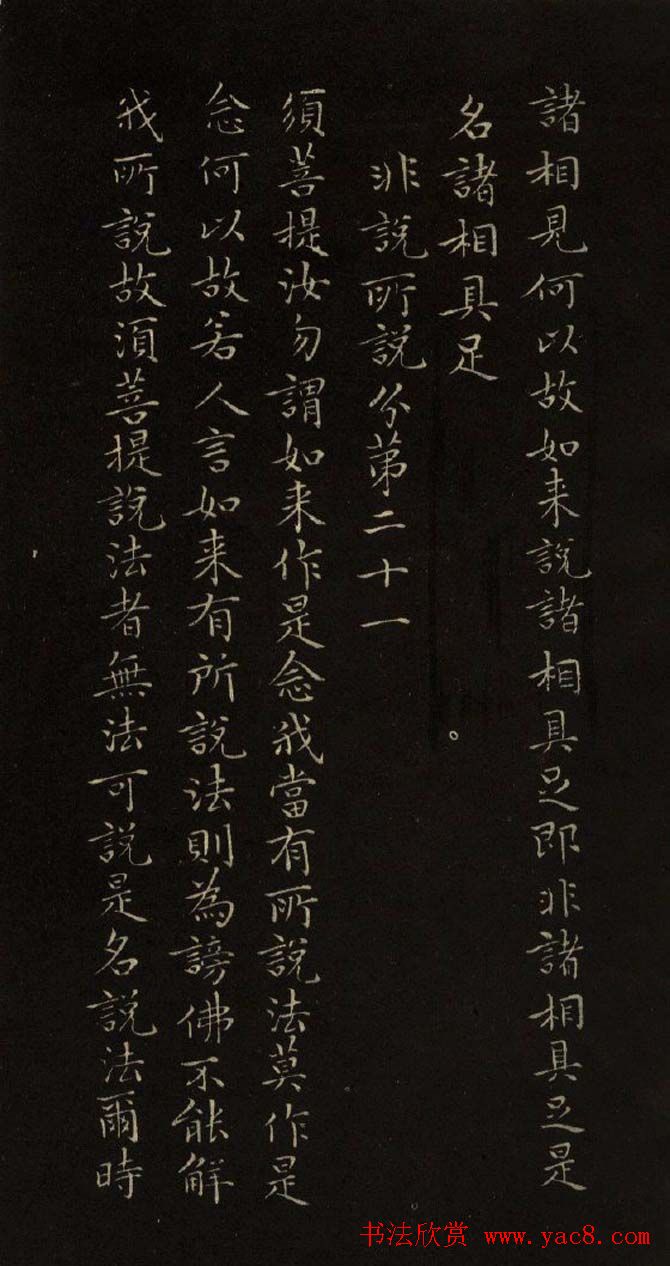 諸相見何以故如来說諸相具足即非諸相具足是
名諸相具足
非說所說分第二十一
須菩提汝勿謂如来作是念我當有所說法莫作是
念何以故若人言如来有所說法則為謗佛不能解
我所說故須菩提說法者無法可說是名說法爾時
书法欣赏 www.yac8.com